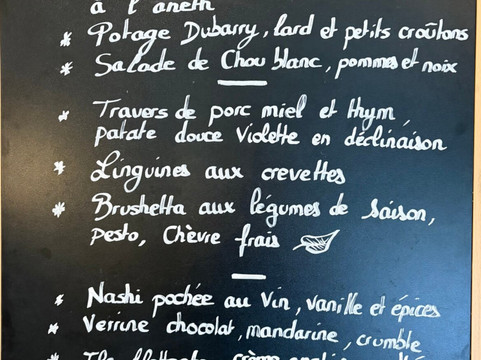 à l'aneth
* Potage Dubarry, lard et petits croûtons
* Salade de Chou blanc, pommes et noix
* Travers de porc miel et thym,
patate douce Violette en déclinaison
* Linguines aux crevettes
* Brushetta aux légumes de saison,
pesto, Chèvre frais
* Nashi pochée au Vin, vanille et épices
* Verrine chocolat, mandarine, crumble